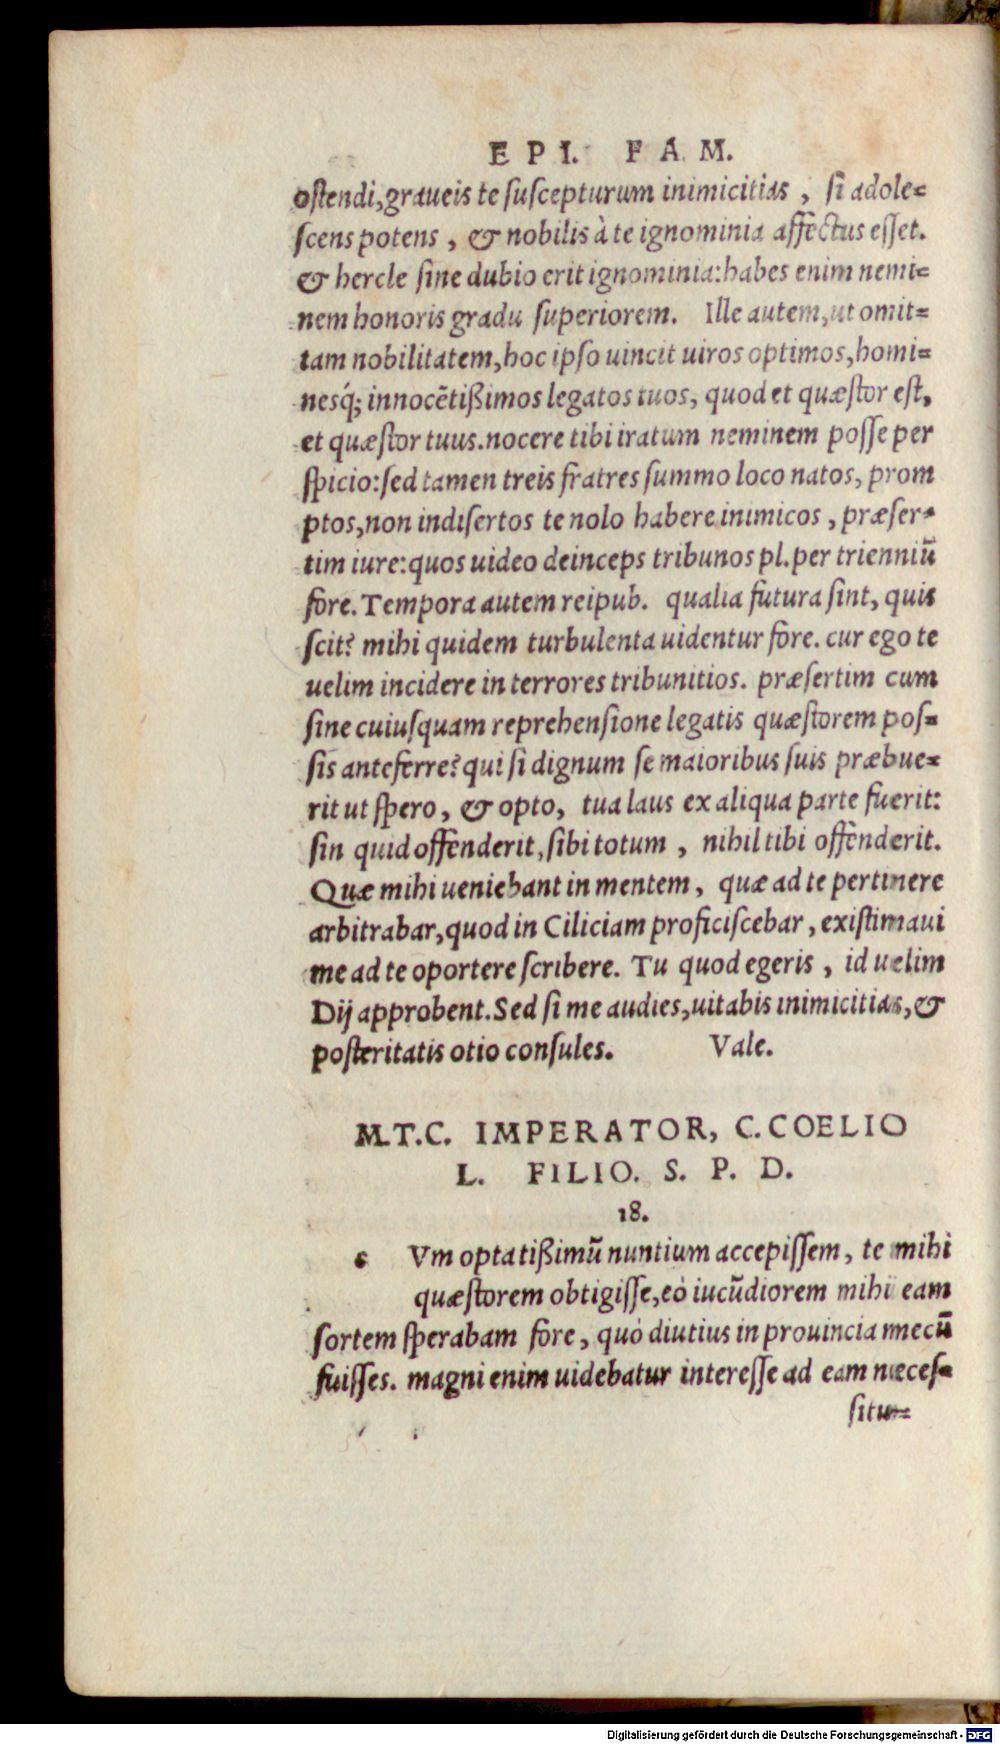 EPI. FAM.
ostendi, graueis te suscepturum inimicitias, si adole=
scens potens, & nobilis à te ignominia affectus esset.
& hercle sine dubio erit ignominia: habes enim nemi=
nem honoris gradu superiorem. Ille autem, ut omit=
tam nobilitatem, hoc ipso uincit uiros optimos, homi=
nesq́; innocētißimos legatos tuos, quod et quæstor est,
et quæstor tuus. nocere tibi iratum neminem posse per
spicio: sed tamen treis fratres summo loco natos, prom
ptos, non indisertos te nolo habere inimicos, præser=
tim iure: quos uideo deinceps tribunos pl. per trienniū
fore. Tempora autem reipub. qualia futura sint, quis
scit? mihi quidem turbulenta uidentur fore. cur ego te
uelim incidere in terrores tribunitios. præsertim cum
sine cuiusquam reprehensione legatis quæstorem pos=
sis anteferre? qui si dignum se maioribus suis præbue=
rit ut spero, & opto, tua laus ex aliqua parte fuerit:
sin quid offenderit, sibi totum, nihil tibi offenderit.
Quæ mihi ueniebant in mentem, quæ ad te pertinere
arbitrabar, quod in Ciliciam proficiscebar, existimaui
me ad te oportere scribere. Tu quod egeris, id uelim
Dij approbent. Sed si me audies, uitabis inimicitias, &
posteritatis otio consules. Vale.
M.T.C. IMPERATOR, C. COELIO
L. FILIO. S. P. D.
18.
c Vm optatißimū nuntium accepissem, te mihi
quæstorem obtigisse, eò iucūdiorem mihi eam
sortem sperabam fore, quò diutius in prouincia mecū
fuisses. magni enim uidebatur interesse ad eam neces=
situ=
Digitalisierung gefördert durch die Deutsche Forschungsgemeinschaft - DFG